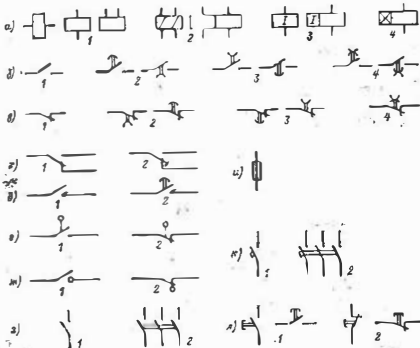 а) 1 2 3 I I 4
б) 1 2 3 4
в) 1 2 3 4
г) 1 2 и)
д) 1 2
е) 1 2 к) 1 2
ж) 1 2
з) 1 2 л) 1 2